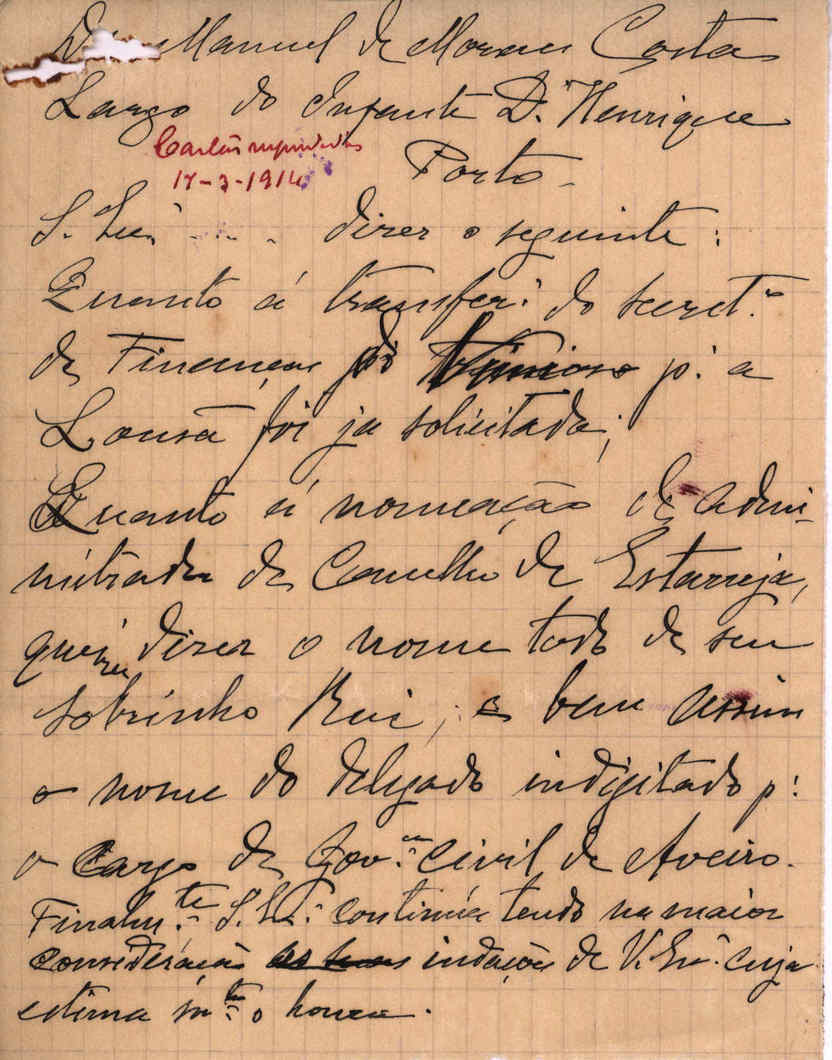 Manuel de Moraes Costa
Largo do Infante D. Henrique
Cartão respondido
17-3-1914
Porto -
S. Exª . . . dizer o seguinte:
Quanto á transferª do secretº
de Finanças p.ª a
Lousã foi ja solicitada;
Quanto á nomeação de admi-
nistrador do Concelho de Estarreja,
queira dizer o nome todo de seu
sobrinho Rui, e bem assim
o nome do delegado indigitado p.ª
o cargo de Gov.or civil de Aveiro.
Finalm.te S. Exª continúa tendo na maior
consideração as indações de V. Exª cuja
estima m.to o honra.